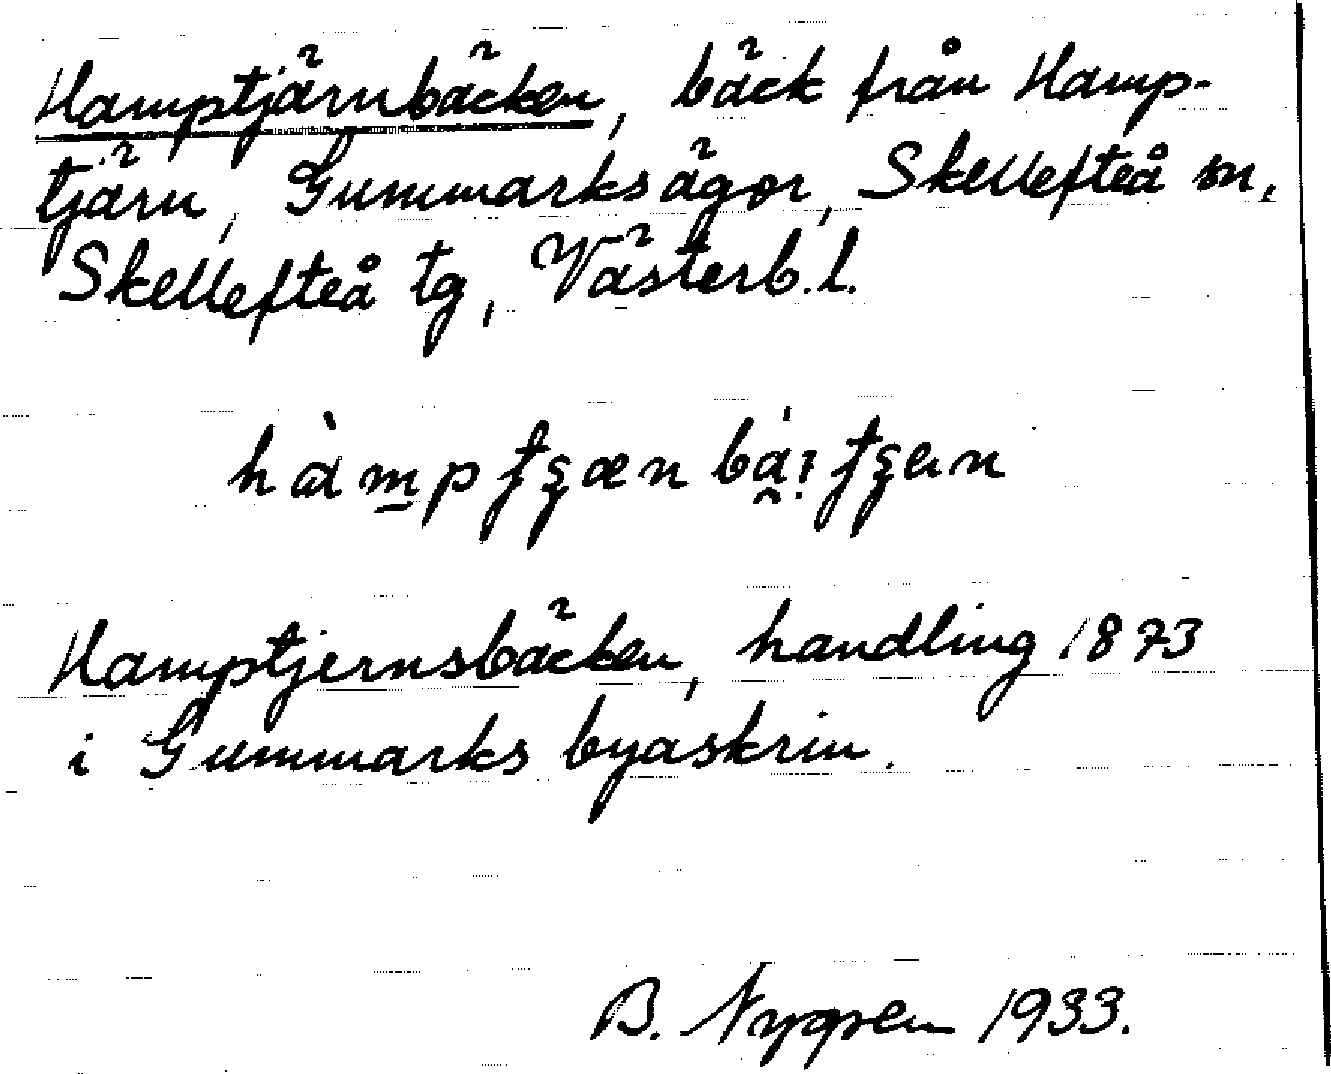 Hamptjärnbäcken, bäck från Hamp-
tjärn, Gummarksägor, Skellefteå sn,
Skellefteå tg, Västerb.l.
Hamptjernsbäcken, handling 1873
i Gummarks byaskrin.
B. Nygren 1933.